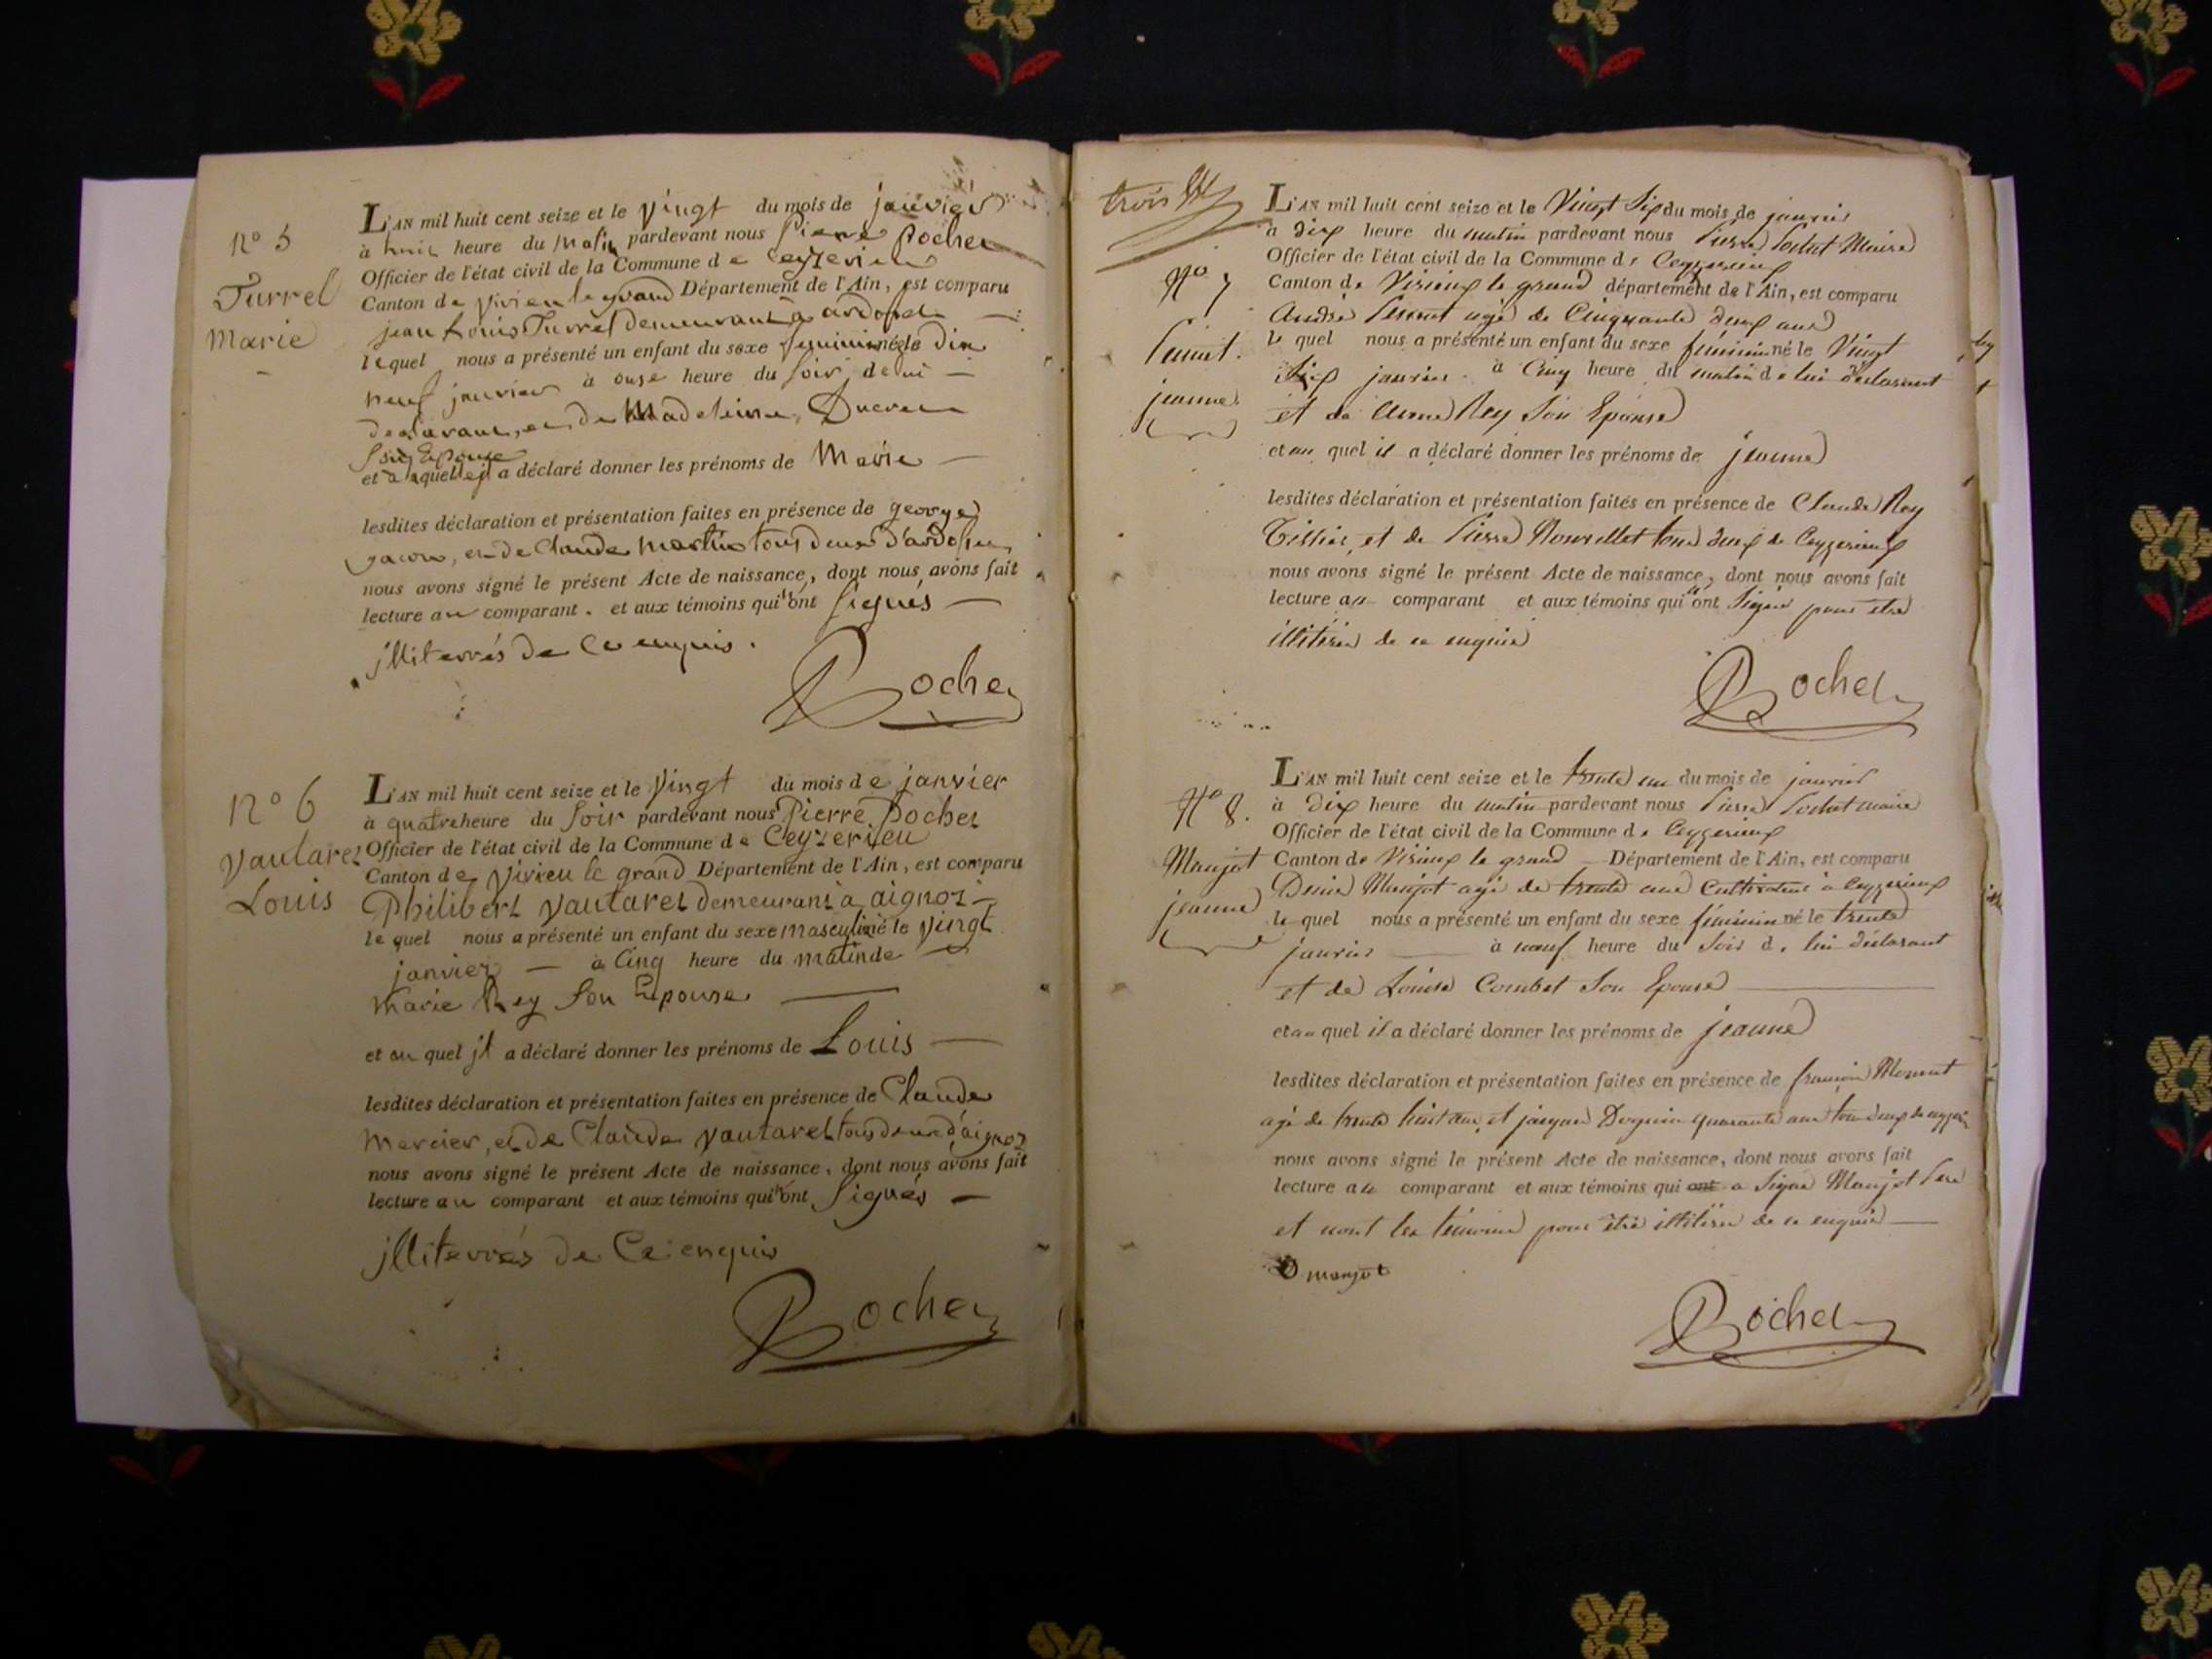 N° 5
Turrel
Marie
L'AN mil huit cent seize et le vingt du mois de janvier
à huit heure du matin pardevant nous Pierre Pochet
Officier de l'état civil de la Commune de Ceyzerieu
Canton de Virieu le grand Département de l'Ain, est comparu
jean Louis Turrel demeurant à ardosset
lequel nous a présenté un enfant du sexe feminin né le dix
neuf janvier à onse heure du soir de lui
declarant, et de Madeleine Ducret
Son Epouse
et à laquelle jl a déclaré donner les prénoms de Marie
lesdites déclaration et présentation faites en présence de george
jacou, et de Claude Martin tous deux d'ardosset
nous avons signé le présent Acte de naissance, dont nous avons fait
lecture au comparant. et aux témoins qui n'ont Signés
jlliterrés de ce enquis.
Pochet
N° 6
Vautaret
Louis
L'AN mil huit cent seize et le Vingt du mois de janvier
à quatre heure du Soir pardevant nous Pierre Pochet
Officier de l'état civil de la Commune de Ceyzerieu
Canton de Virieu le grand Département de l'Ain, est comparu
Philibert Vautaret demeurant à aignoz
lequel nous a présenté un enfant du sexe masculin né le Vingt
janvier à Cinq heure du matin de
Marie Rey Son Epouse
et au quel jl a déclaré donner les prénoms de Louis
lesdites déclaration et présentation faites en présence de Claude
Mercier, et de Claude Vautaret tous deux d'aignoz
nous avons signé le présent Acte de naissance, dont nous avons fait
lecture au comparant et aux témoins qui n'ont Signés
jlliterrés de Ce enquis
Pochet
trois
N° 7
jeanne
L'AN mil huit cent seize et le Vingt Six du mois de janvier
à dix heure du matin pardevant nous Pierre Pochet Maire
Officier de l'état civil de la Commune de Ceyzerieux
Canton de Virieux le grand département de l'Ain, est comparu
André agé de Cinquante deux ans
le quel nous a présenté un enfant du sexe féminin né le Vingt
Six janvier à Cinq heure du matin de lui déclarant
et de Rey Son Epouse
et au quel il a déclaré donner les prénoms de jeanne
lesdites déclaration et présentation faites en présence de Claude Rey
Tissier, et de Pierre Nourellet tous deux de Ceyzerieux
nous avons signé le présent Acte de naissance, dont nous avons fait
lecture au comparant et aux témoins qui n'ont Signé pour etre
illitérés de ce enquis
Pochet
N° 8.
Manjot
jeanne
L'AN mil huit cent seize et le trente un du mois de janvier
à Dix heure du matin pardevant nous Pierre Pochet maire
Officier de l'état civil de la Commune de Ceyzerieux
Canton de Virieux le grand Département de l'Ain, est comparu
Denis Manjot agé de trente ans Cultivateur à Ceyzerieux
le quel nous a présenté un enfant du sexe féminin né le trente
janvier à neuf heure du Soir de lui déclarant
et de Louise Combet Son Epouse
et au quel il a déclaré donner les prénoms de jeanne
lesdites déclaration et présentation faites en présence de françois
agé de trente huit ans, et jacques quarante ans tous deux de
nous avons signé le présent Acte de naissance, dont nous avons fait
lecture au comparant et aux témoins qui ont a Signé Manjot Pere
et nont les témoins pour être illitérés de ce enquis
D manjot
Pochet